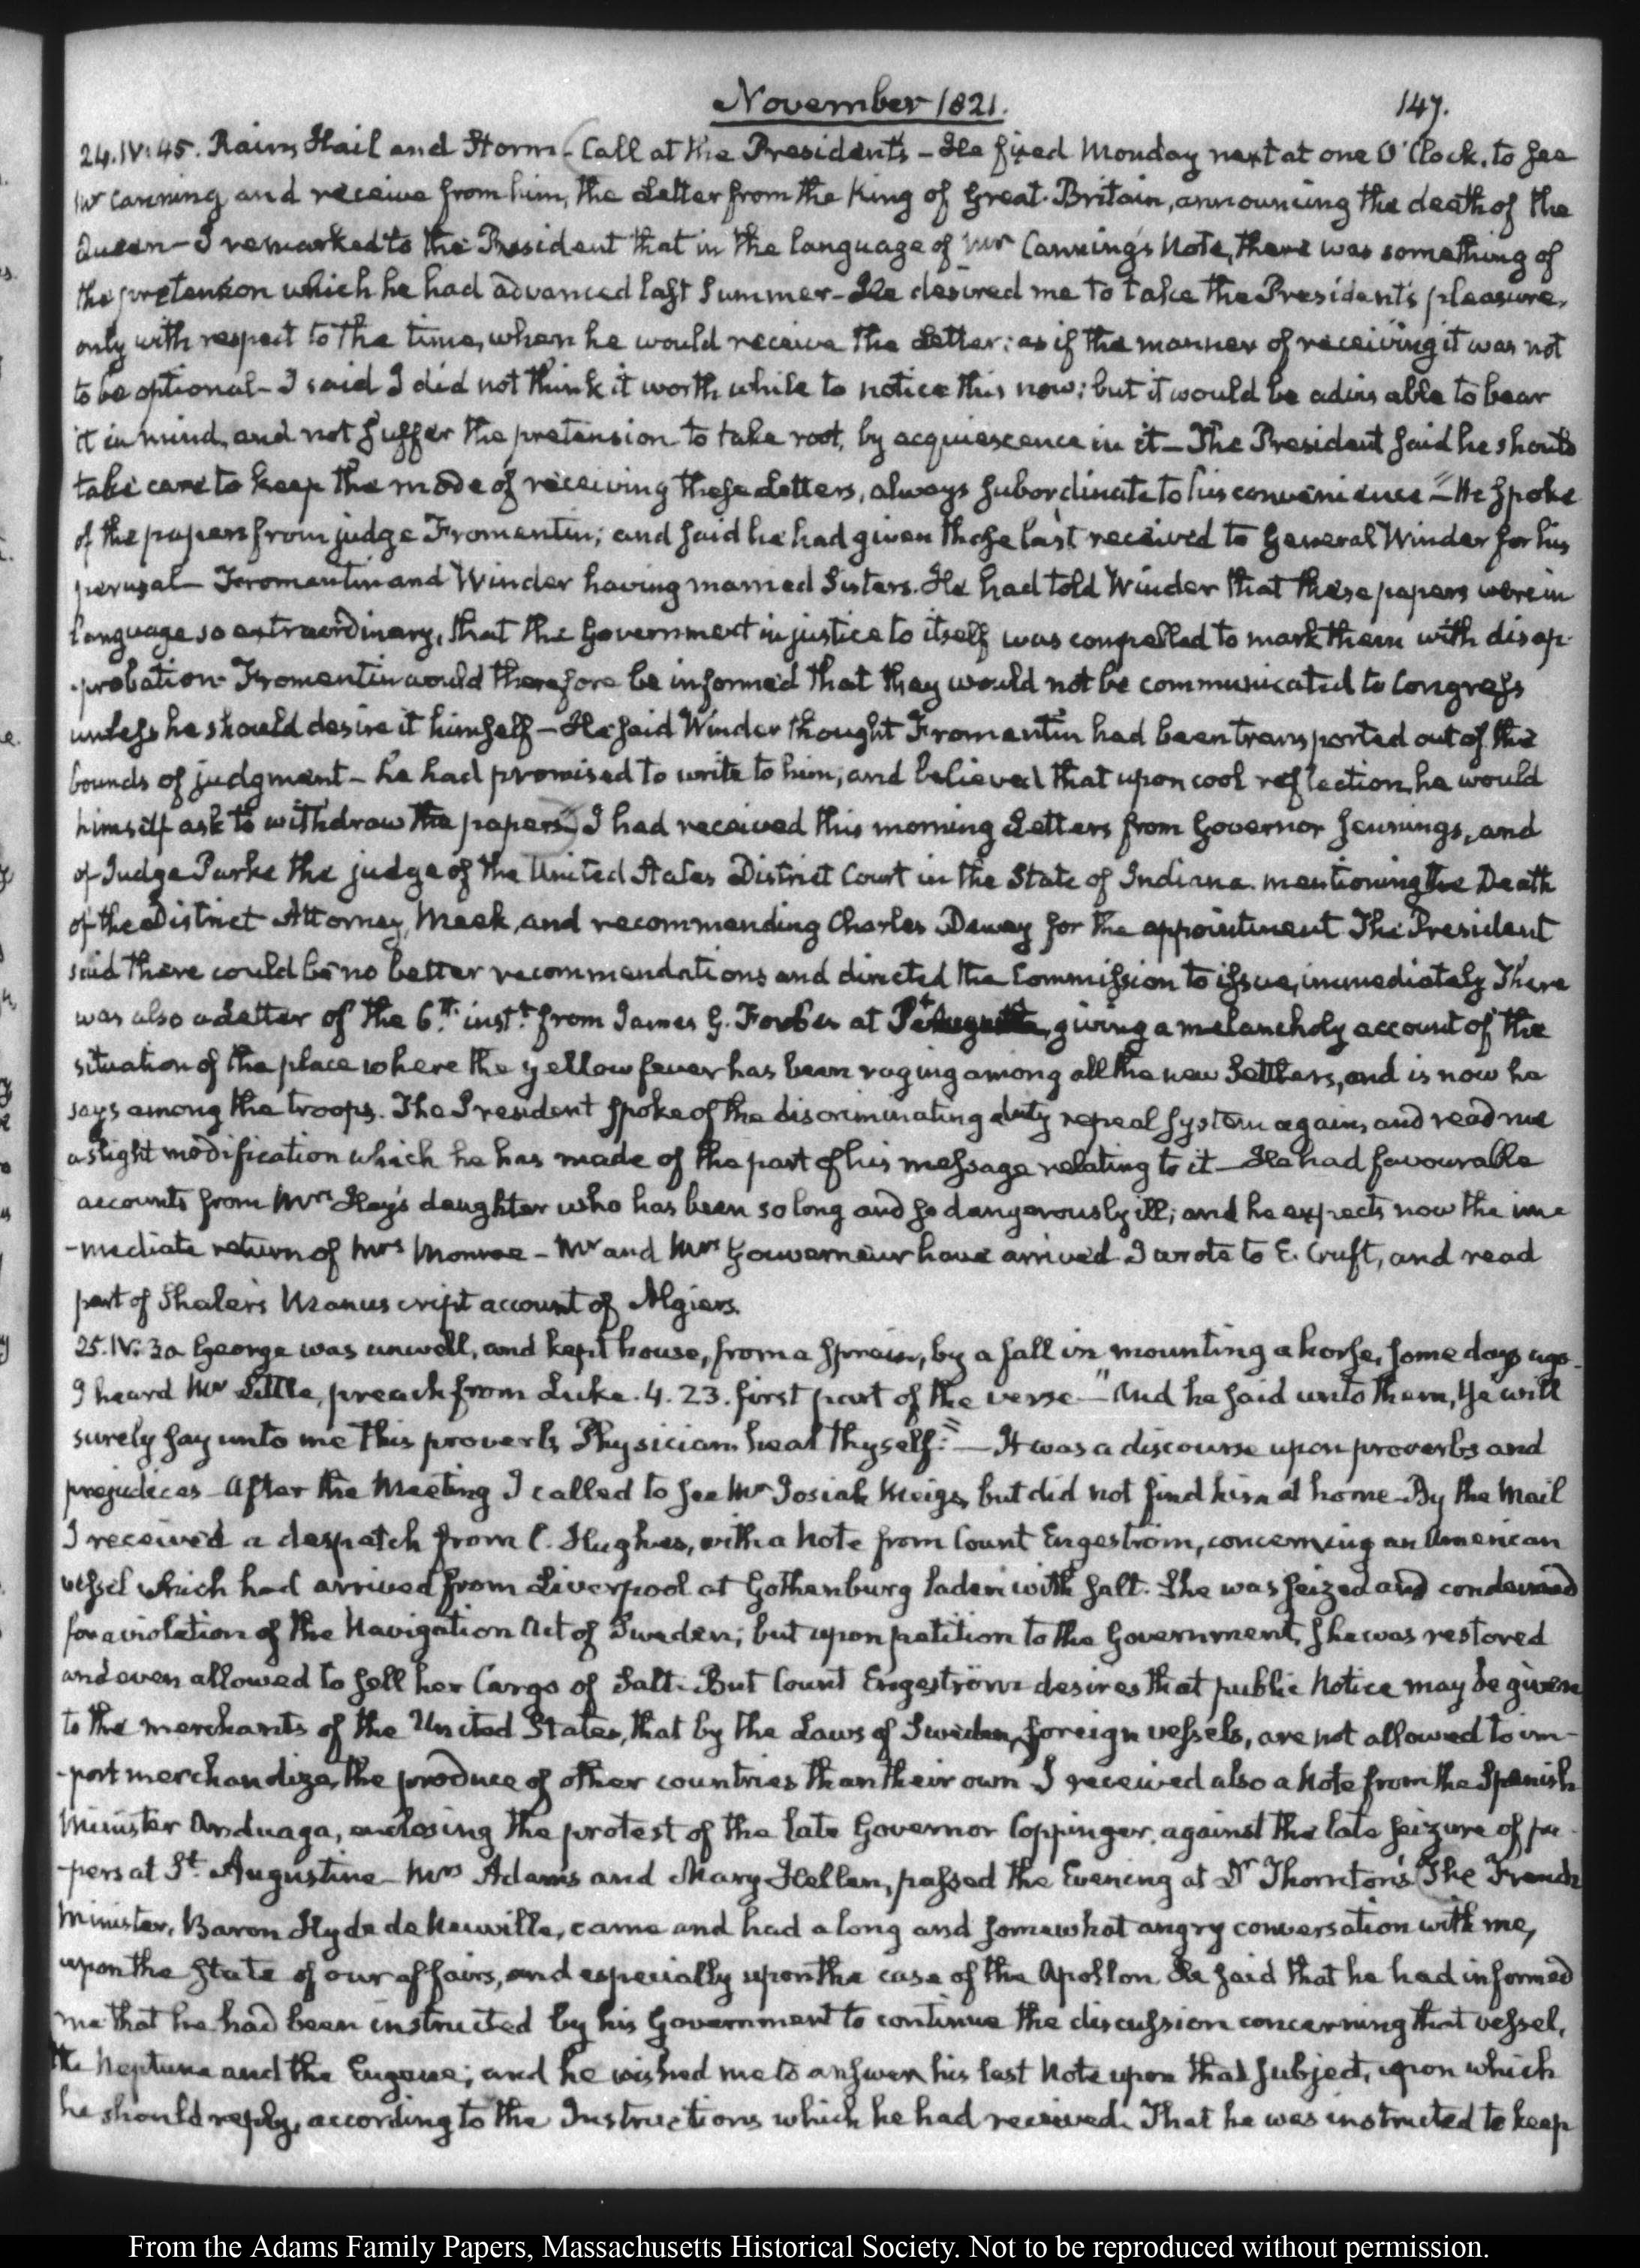 November 1821.
147.
24. IV: 45. Rain, Hail and Storm. Call at the President's — He fixed Monday next at one O'Clock, to see
Mr Canning and receive from him, the Letter from the King of Great-Britain, announcing the death of the
Queen — I remarked to the President that in the language of Mr Canning's Note, there was something of
the pretension which he had advanced last Summer — He desired me to take the President's pleasure,
only with respect to the time, when he would receive the Letter: as if the manner of receiving it was not
to be optional — I said I did not think it worth while to notice this now; but it would be advisable to bear
it in mind, and not suffer the pretension to take root, by acquiescence in it — The President said he should
take care to keep the mode of receiving these Letters, always subordinate to his convenience — He spoke
of the papers from judge Fromentin; and said he had given those last received to General Winder for his
perusal — Fromentin and Winder having married Sisters. He had told Winder that these papers were in
language so extraordinary, that the Government in justice to itself was compelled to mark them with disap-
-probation. Fromentin would therefore be informed that they would not be communicated to Congress
unless he should desire it himself — He said Winder thought Fromentin had been transported out of the
bounds of judgment — he had promised to write to him; and believed that upon cool reflection, he would
himself ask to withdraw the papers.) I had received this morning Letters from Governor Jennings, and
of Judge Parke the judge of the United States District Court in the State of Indiana. mentioning the Death
of the District Attorney, Meek, and recommending Charles Dewey for the appointment The President
said there could be no better recommendations and directed the Commission to issue, immediately There
was also a Letter of the 6th. instt. from James G. Forbes at St Augustine, giving a melancholy account of the
situation of the place where the yellow fever has been raging among all the new Settlers, and is now he
says among the troops. The President spoke of the discriminating duty repeal system again, and read me
a slight modification which he has made of the part of his message relating to it — He had favourable
accounts from Mrs Hay's daughter who has been so long and so dangerously ill; and he expects now the im-
-mediate return of Mrs Monroe — Mr and Mrs Gouverneur have arrived. I wrote to E. Cruft, and read
part of Shaler's Manuscript account of Algiers.
25. IV: 30 George was unwell, and kept house, from a sprain, by a fall in mounting a horse, some days ago.
I heard Mr Little, preach from Luke. 4. 23. first part of the verse — "And he said unto them, Ye will
surely say unto me this proverb, Physician heal thyself:" — It was a discourse upon proverbs and
prejudices — After the Meeting I called to see Mr Josiah Meigs, but did not find him at home — By the Mail
I received a despatch from C. Hughes, with a Note from Count Engeström, concerning an American
vessel which had arrived from Liverpool at Gothenburg laden with salt. She was seized and condemned
for a violation of the Navigation Act of Sweden; but upon petition to the Government, she was restored
and even allowed to sell her Cargo of Salt. But Count Engeström desires that public Notice may be given
to the merchants of the United States, that by the Laws of Sweden, foreign vessels, are not allowed to im-
-port merchandize, the produce of other countries than their own I received also a Note from the Spanish
Minister Anduaga, enclosing the protest of the late Governor Coppinger, against the late seizure of pa-
-pers at St. Augustine — Mrs Adams and Mary Hellen, passed the Evening at Dr Thornton's (The French
Minister, Baron Hyde de Neuville, came and had a long and somewhat angry conversation with me,
upon the State of our affairs, and especially upon the case of the Apollon He said that he had informed
me that he had been instructed by his Government to continue the discussion concerning that vessel,
the Neptune and the Eugene; and he wished me to answer his last Note upon that subject, upon which
he should reply, according to the Instructions which he had received. That he was instructed to keep
From the Adams Family Papers, Massachusetts Historical Society. Not to be reproduced without permission.